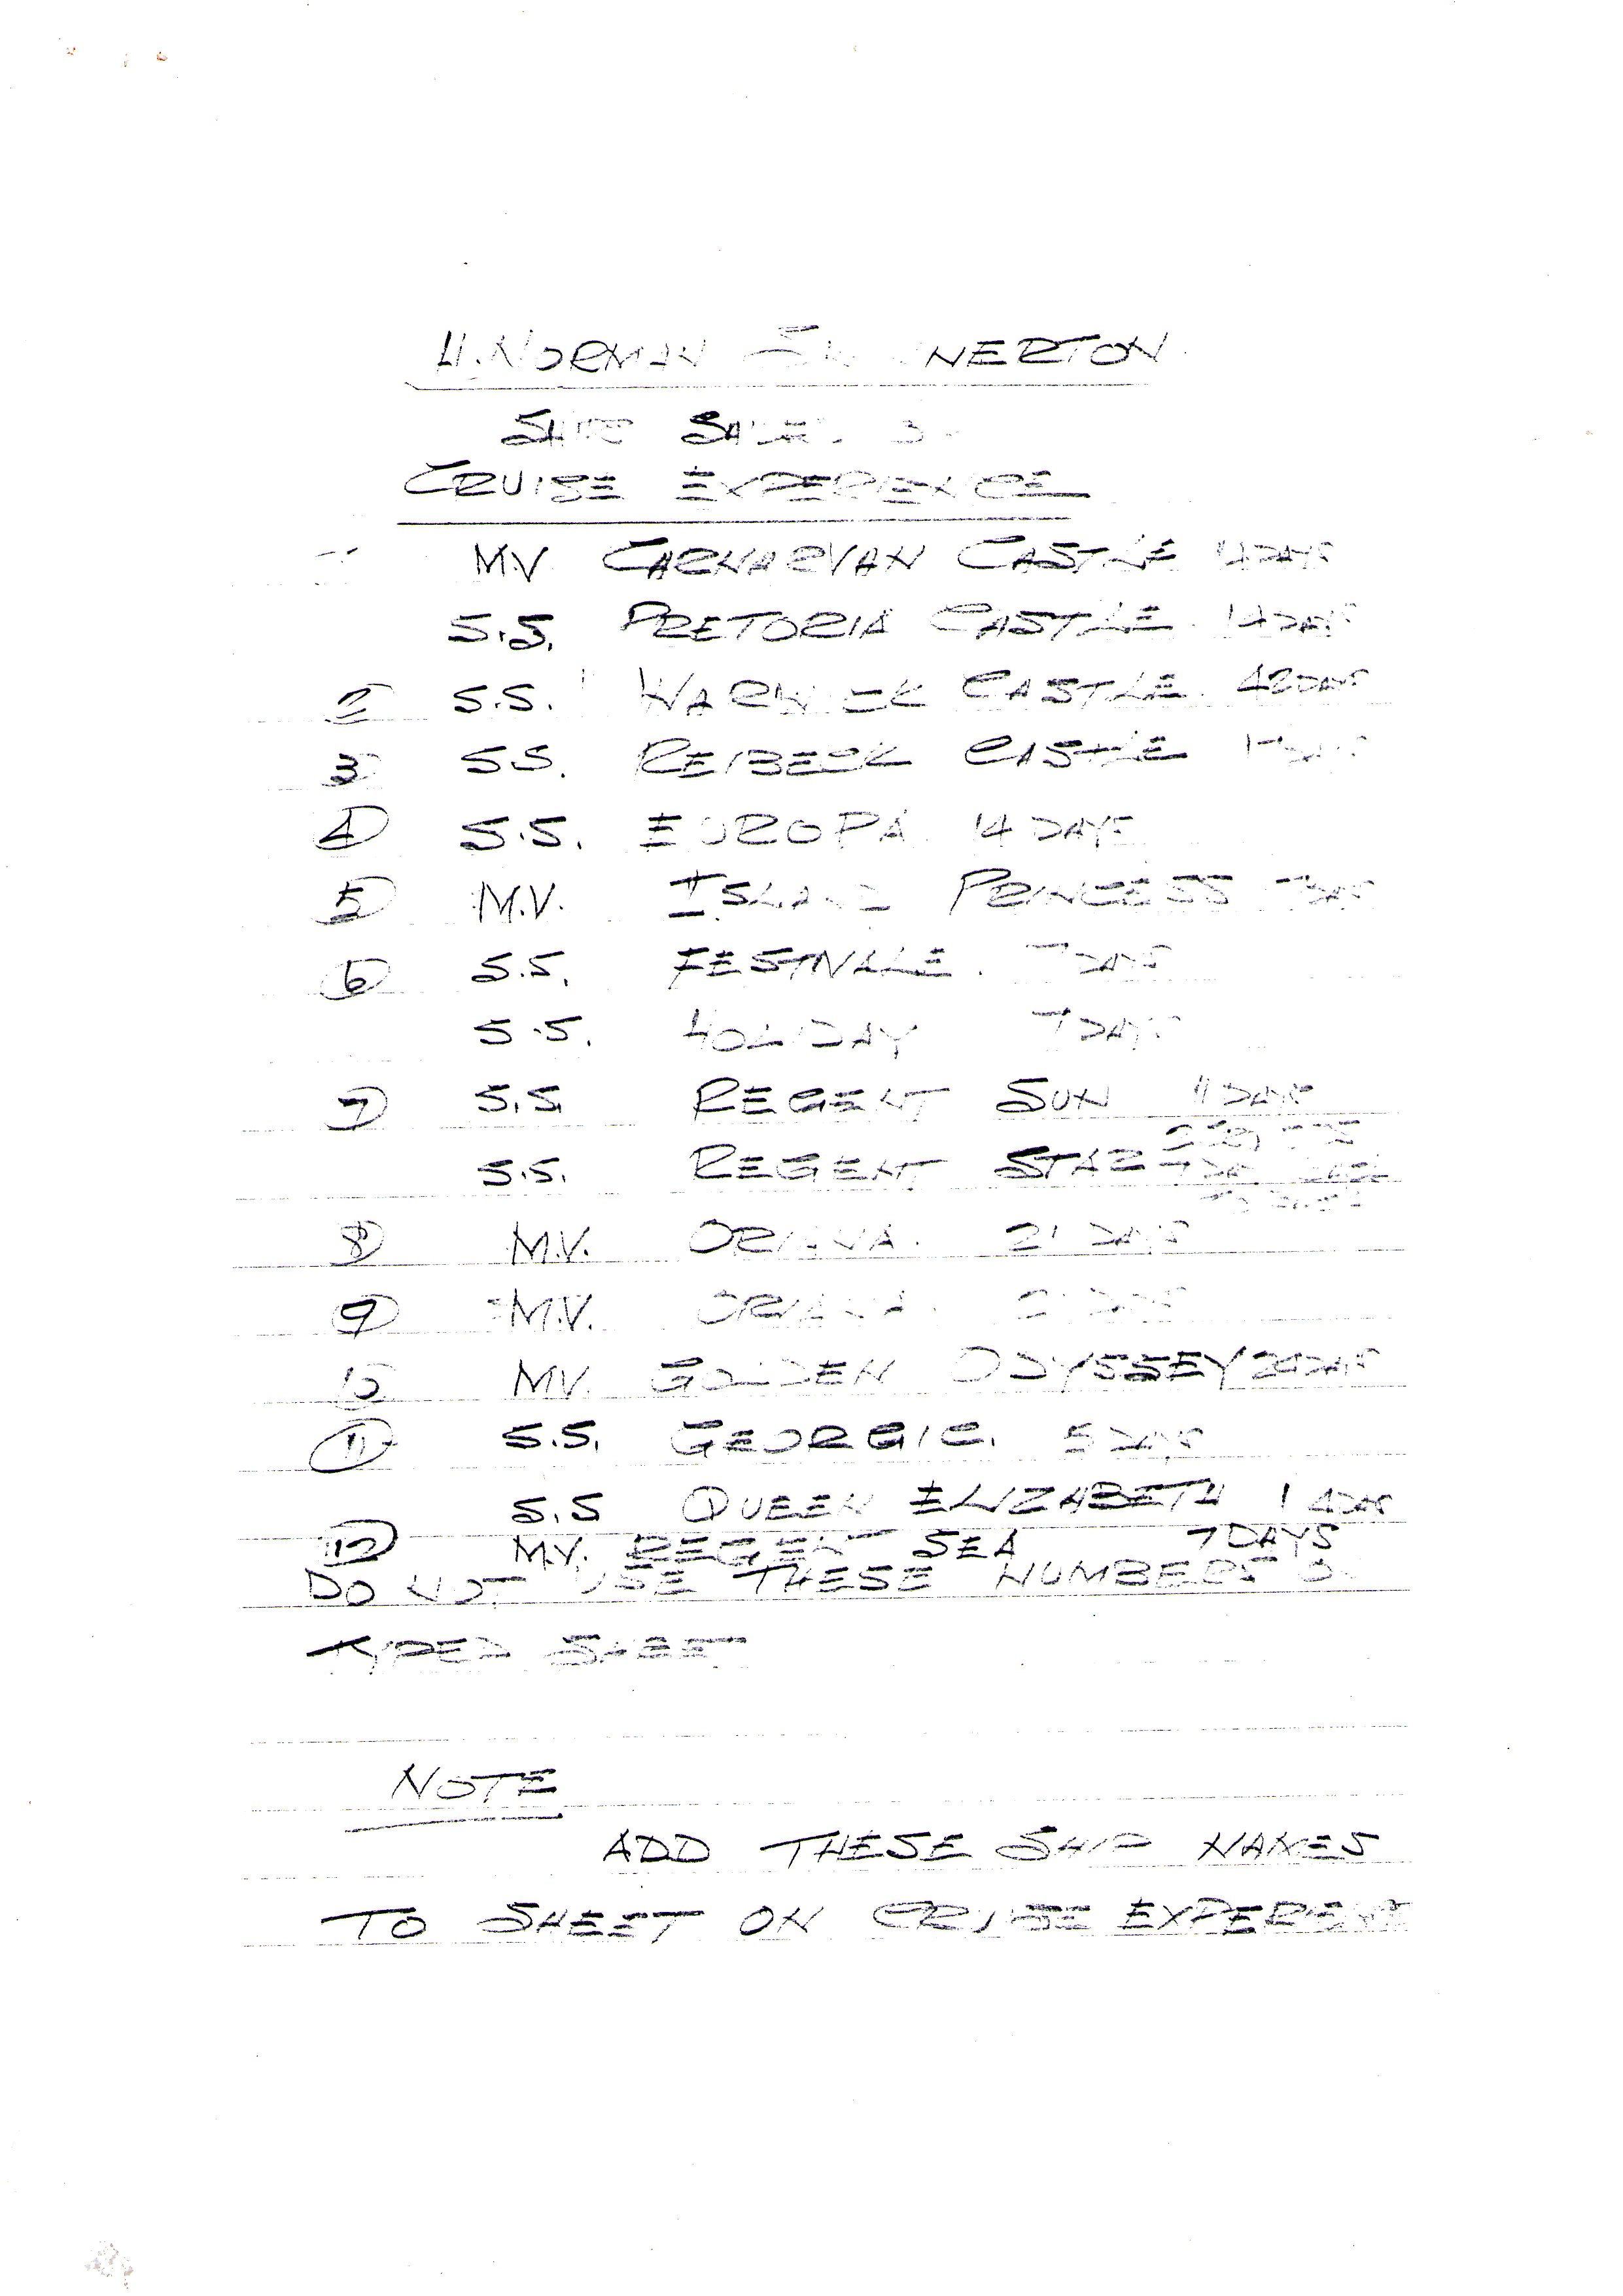 H. NORMAN NERTON
CRUISE EXPERIENCE
M.V. CARNARVAN CASTLE 14 DAYS
S.S. PRETORIA CASTLE 14 DAYS
2 S.S. WARWICK CASTLE 42 DAYS
3 S.S. REIBECK CASTLE
4 S.S. EUROPA 14 DAYS
5 M.V. ISLAND PRINCESS 7 DAYS
6 S.S. FESTIVALE. 7 DAYS
S.S. HOLIDAY 7 DAYS
7 S.S. REGENT SUN 11 DAYS
S.S. REGENT STAR
8 M.V. ORIANA. 21 DAYS
9 M.V. ORIANA. 21 DAYS
10 M.V. GOLDEN ODYSSEY DAYS
11 S.S. GEORGIC. 5 DAYS
S.S QUEEN ELIZABETH 1 4 DAYS
12 M.V. REGENT SEA 7 DAYS
DO NOT USE THESE NUMBERS
TYPED SHEET
NOTE
ADD THESE SHIP NAMES
TO SHEET ON CRUISE